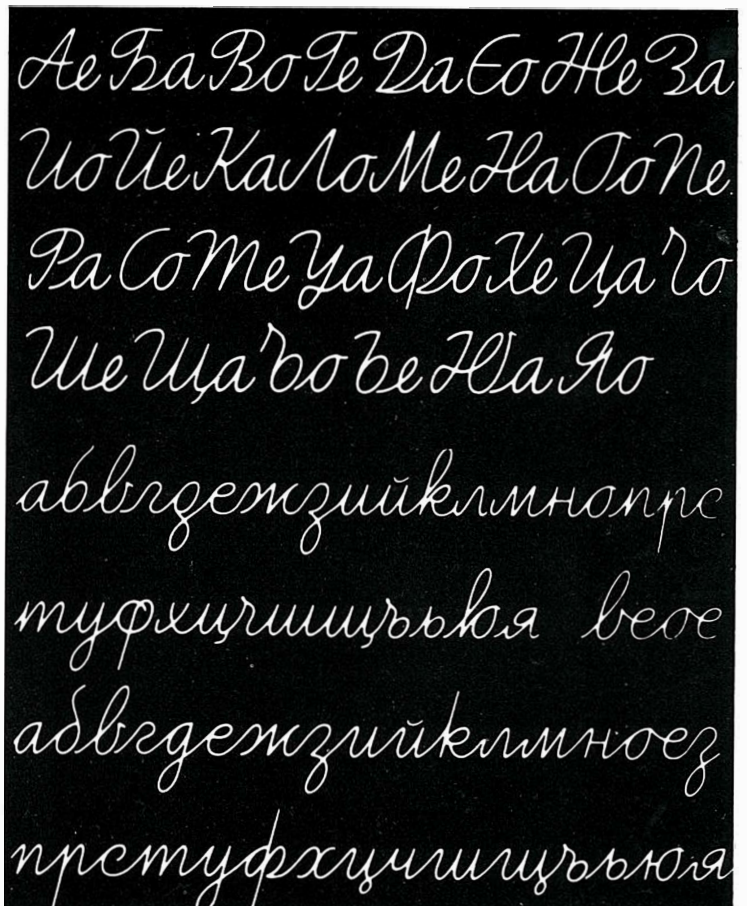 Ае Ба Во Ге Да Ео Же За
Ио Йе Ка Ло Ме На Оо Пе
Ра Со Те Уа Фо Хе Ца Чо
Ше Ща Ъо Ье Юа Яо
абвгдежзийклмнопрс
туфхцчшщъьюя веое
абвгдежзийклмноез
прстуфхцчшщъьюя